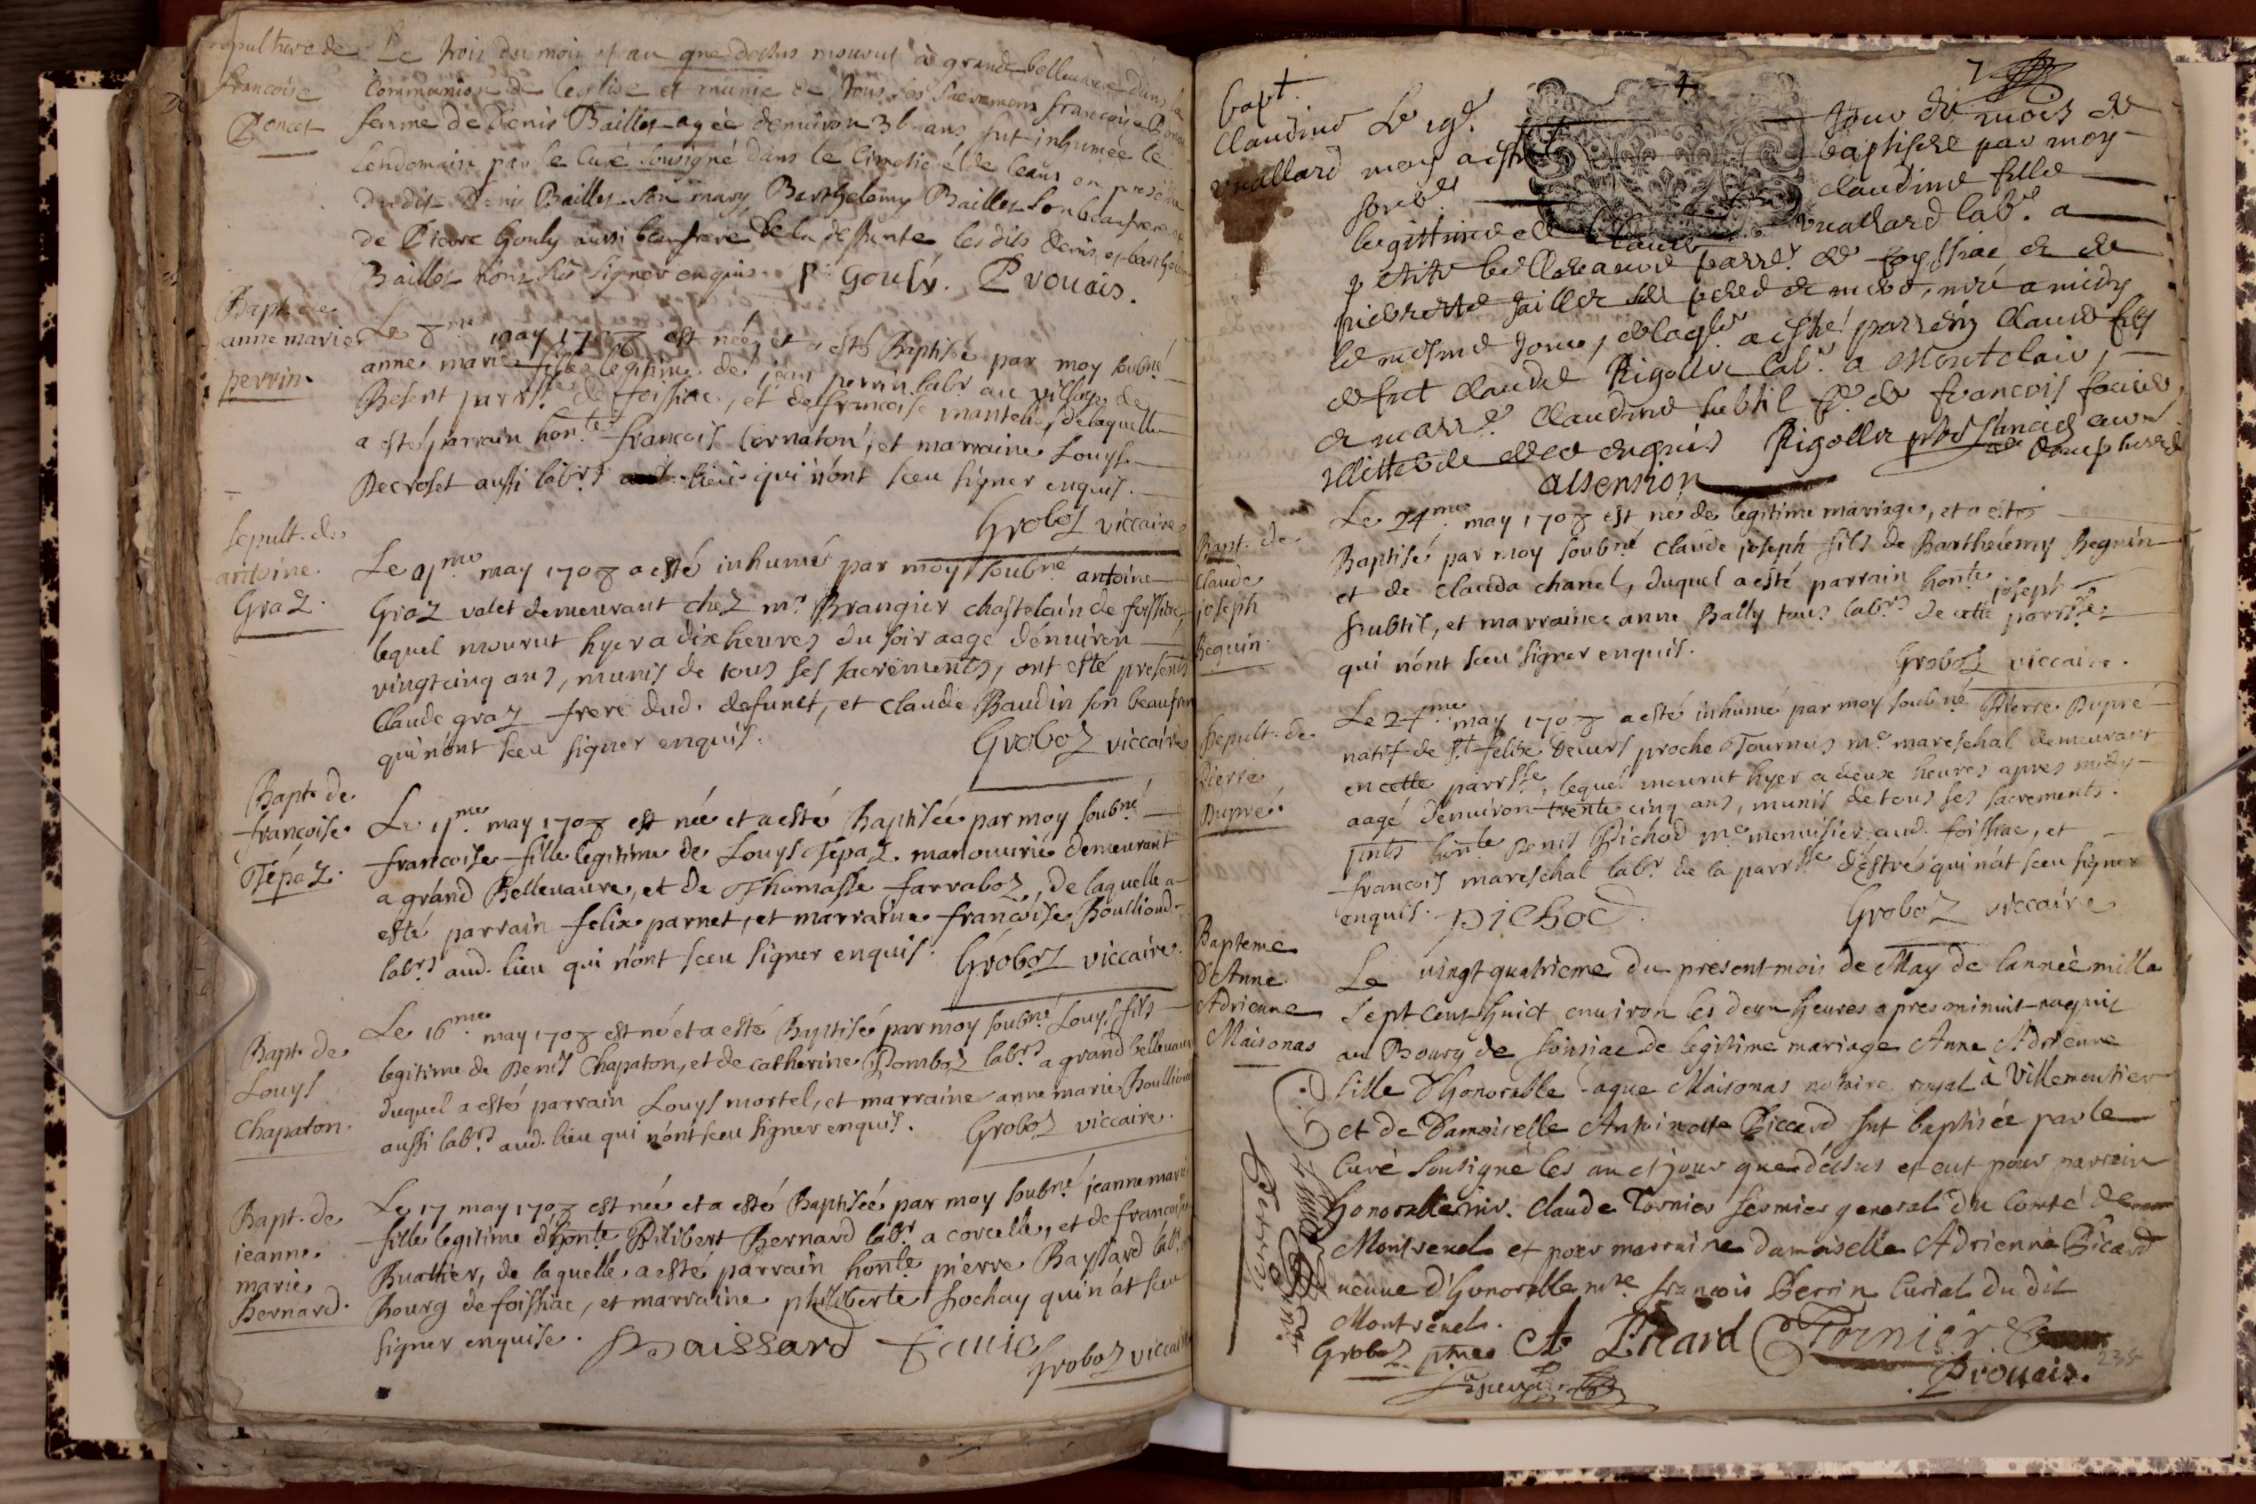 sepulture de
francoise
Poncet
Le trois du mois et an que dessus mourut à grande bellevavre dans la
Communion de leglise et munie de tous ses sacremens francoise Poncet
femme de Denis Baillet agée denviron 36 ans fut inhumée le
lendemain par le Curé sousigné dans le Cimetiere de ceans en presence
dudit Denis Baillet son mary Barthelemy Baillet son beaufrere et
de Pierre Gouly aussi beaufrere de la deffunte, les dits denis et barthelemy
Baillet nont sceu signer enquis. P Gouly. Provais.
Bapt. de
anne marie
perrin
Le 8me may 1708 est née et a esté Baptisé par moy soubné
anne marie fille legitime de jean perrin labr au village de
Besent parrsse de foissiac, et de francoise mantelin, de laquelle
a esté parrain honte francois Cornaton, et marraine Louyse
Decroset aussi labrs lieu qui n'ont sceu signer enquis.
Groboz viccaire
sepult. de
antoine
Graz.
Le 9me may 1708 a esté inhumé par moy soubné antoine
Graz valet demeurant chez mr Brangier chastelain de foissiac,
lequel mourut hyer a dix heures du soir aagé d'enuiron
vingt cinq ans, munis de tous ses sacrements, ont esté presents
Claude graz frere dud. defunct, et claude Baudin son beaufrere
qui n'ont sceu signer enquis.
Groboz viccaire
Bapt. de
françoise
Tépaz.
Le 11me may 1708 est née et a esté Baptisée par moy soubné
francoise fille legitime de Louys Tépaz manouurié demeurant
a grand Bellevaure, et de Thomasse farraboz, de laquelle a
esté parrain felix parnet, et marraine françoise Boulliond
labrs aud. lieu qui n'ont sceu signer enquis. Groboz viccaire.
Bapt. de
Louys
Chapaton.
Le 16me may 1708 est né et a esté Baptisé par moy soubné Louys fils
legitime de Denis Chapaton, et de catherine Domboz labrs a grand bellevaure
duquel a esté parrain Louys mortel, et marraine anne marie Boulliond
aussi labrs aud. lieu qui n'ont sceu signer enquis. Groboz viccaire.
Bapt. de
jeanne
marie
Bernard.
Le 17 may 1708 est née et a esté Baptisée par moy soubné jeanne marie
fille legitime d'honte Philibert Bernard labr a corcelle, et de francoise
Buattier, de laquelle a esté parrain honte pierre Bayssard labr
Bourg de foissiac, et marraine philiberte Bochay qui n'at sceu
signer enquise. Baissard
Groboz viccaire
Bapt.
claudine
vuallard
7
Le 19e jour du mois de
may a esté baptisée par moy
soub. claudine fille
legitime de Claude vuallard labr. a
petite bellevaure parre. de foyssiac et de
pierrette Jaillet ses pere et mere, née a midy
le mesme jour, de laqle a esté parrein Claude fils
de fut claude Rigollet labr. a Montclair,
et marre. claudine subtil fe. de francois
illitterée enquis Rigollet
assension
Bapt. de
Claude
joseph
Beguin.
Le 24me may 1708 est né de legitime mariage, et a esté
Baptisé par moy soubné claude joseph fils de Barthelemy Beguin
et de clauda chanel, duquel a esté parrain honte joseph
subtil, et marraine anne Bally tous labrs de cette parrsse
qui n'ont sceu signer enquis.
Groboz viccaire.
Sepult. de
Pierre
Dupré.
Le 24me may 1708 a esté inhumé par moy soubné Pierre Dupré
natif de St felix proche Tournus me mareschal demeurant
en cette parrsse, lequel mourut hyer a deux heures apres midy
aagé d'enuiron trente cinq ans, munis de tous ses sacrements.
pnts honte Denis Pichod me menuisier aud. foissiac, et
francois mareschal labr de la parrsse d'Estré qui n'at sceu signer
enquis. Pichod.
Groboz viccaire
Bapteme
d'Anne
Adrienne
Maisonas
Le vingt quatrieme du present mois de May de lannèe mille
sept cent huict environ les deux heures apres minuit naquit
au Bourg de foissiac de legitime mariage Anne Adrienne
fille d'honorable Maisonas notaire royal à Villemoutier
et de Damoiselle Antoinette Piccard fut baptisée par le
Curé sousigné les an et jour que dessus et eut pour parrain
honorable mr. Claude Tornier fermier general du Comté de
Montrevel et pour marraine damoiselle Adrienne Picard
veuve d'honorable mre francois Perrin Curial du dit
Montrevel.
Groboz A Picard Tornier
Provais.
238